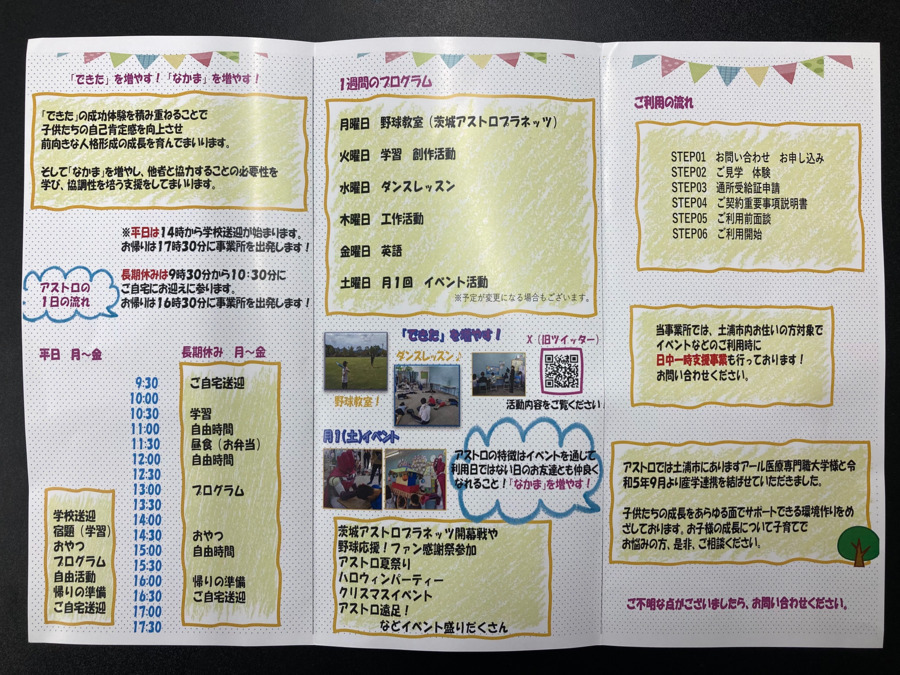 「できた」を増やす！「なかま」を増やす！
「できた」の成功体験を積み重ねることで
子供たちの自己肯定感を向上させ
前向きな人格形成の成長を育んでまいります。
そして「なかま」を増やし、他者と協力することの必要性を
学び、協調性を培う支援をしてまいります。
※平日は14時から学校送迎が始まります。
お帰りは17時30分に事業所を出発します！
アストロの
1日の流れ
長期休みは9時30分から10:30分に
ご自宅にお迎えに参ります。
お帰りは16時30分に事業所を出発します！
平日 月～金
学校送迎
宿題（学習）
おやつ
プログラム
自由活動
帰りの準備
ご自宅送迎
9:30
10:00
10:30
11:00
11:30
12:00
12:30
13:00
13:30
14:00
14:30
15:00
15:30
16:00
16:30
17:00
17:30
長期休み 月～金
ご自宅送迎
学習
自由時間
昼食（お弁当）
自由時間
プログラム
おやつ
自由時間
帰りの準備
ご自宅送迎
1週間のプログラム
月曜日 野球教室（茨城アストロプラネッツ）
火曜日 学習 創作活動
水曜日 ダンスレッスン
木曜日 工作活動
金曜日 英語
土曜日 月1回 イベント活動
※予定が変更になる場合もございます。
「できた」を増やす！
ダンスレッスン♪
野球教室！
X（旧ツイッター）
活動内容をご覧ください
月1(土)イベント
アストロの特徴はイベントを通して
利用日ではない日のお友達とも仲良く
なれること！「なかま」を増やす！
茨城アストロプラネッツ開幕戦や
野球応援！ファン感謝祭参加
アストロ夏祭り
ハロウィンパーティー
クリスマスイベント
アストロ遠足！
などイベント盛りだくさん
ご利用の流れ
STEP01 お問い合わせ お申し込み
STEP02 ご見学 体験
STEP03 通所受給証申請
STEP04 ご契約重要事項説明書
STEP05 ご利用前面談
STEP06 ご利用開始
当事業所では、土浦市内お住いの方対象で
イベントなどのご利用時に
日中一時支援事業も行っております！
お問い合わせください。
アストロでは土浦市にありますアール医療専門職大学様と令
和5年9月より産学連携を結ばせていただきました。
子供たちの成長をあらゆる面でサポートできる環境作りをめ
ざしております。お子様の成長について子育てで
お悩みの方、是非、ご相談ください。
ご不明な点がございましたら、お問い合わせください。